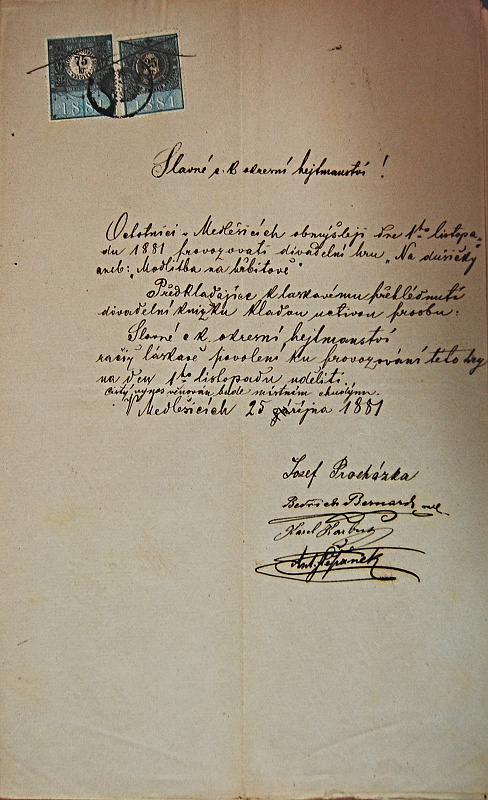 75
kr
25
1881
1881
Slavné c. k. okresní hejtmanství!
Ochotníci v Medlešicích obmýšlejí dne 1ho listopa-
du 1881 provozovati divadelní hru „Na dušičky
aneb: „Modlitba na hřbitově“
Předkládajíce k laskavému přehlédnutí
divadelní knížku kladou uctivou prosbu:
Slavné c. k. okresní hejtmanství
račiž láskavě povolení ku provozování této hry
na den 1ho listopadu uděliti.
Čistý výnos věnován bude místním chudým.
V Medlešicích 25 října 1881
Josef Procházka
Bedřich Bernard
Karel
Ant. Štěpánek